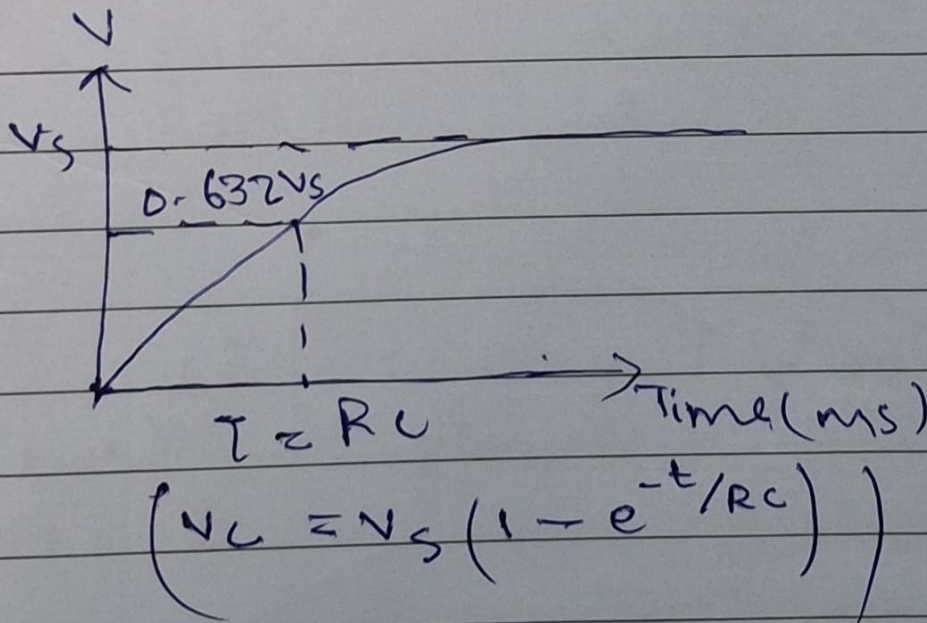 V
Vs
0.632Vs
τ = RC
Time(ms)
(Vc = Vs (1 - e^-t/RC))